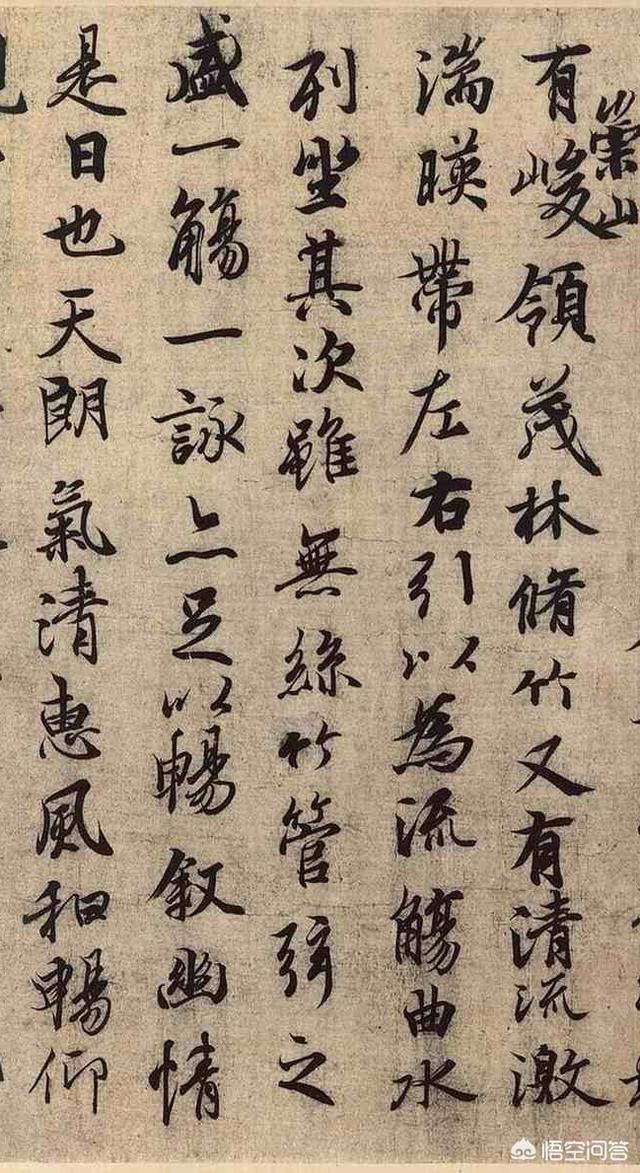 崇山
有峻領茂林脩竹又有清流激
湍暎帶左右引以為流觴曲水
列坐其次雖無絲竹管弦之
盛一觴一詠亦足以暢敘幽情
是日也天朗氣清惠風和暢仰
悟空问答